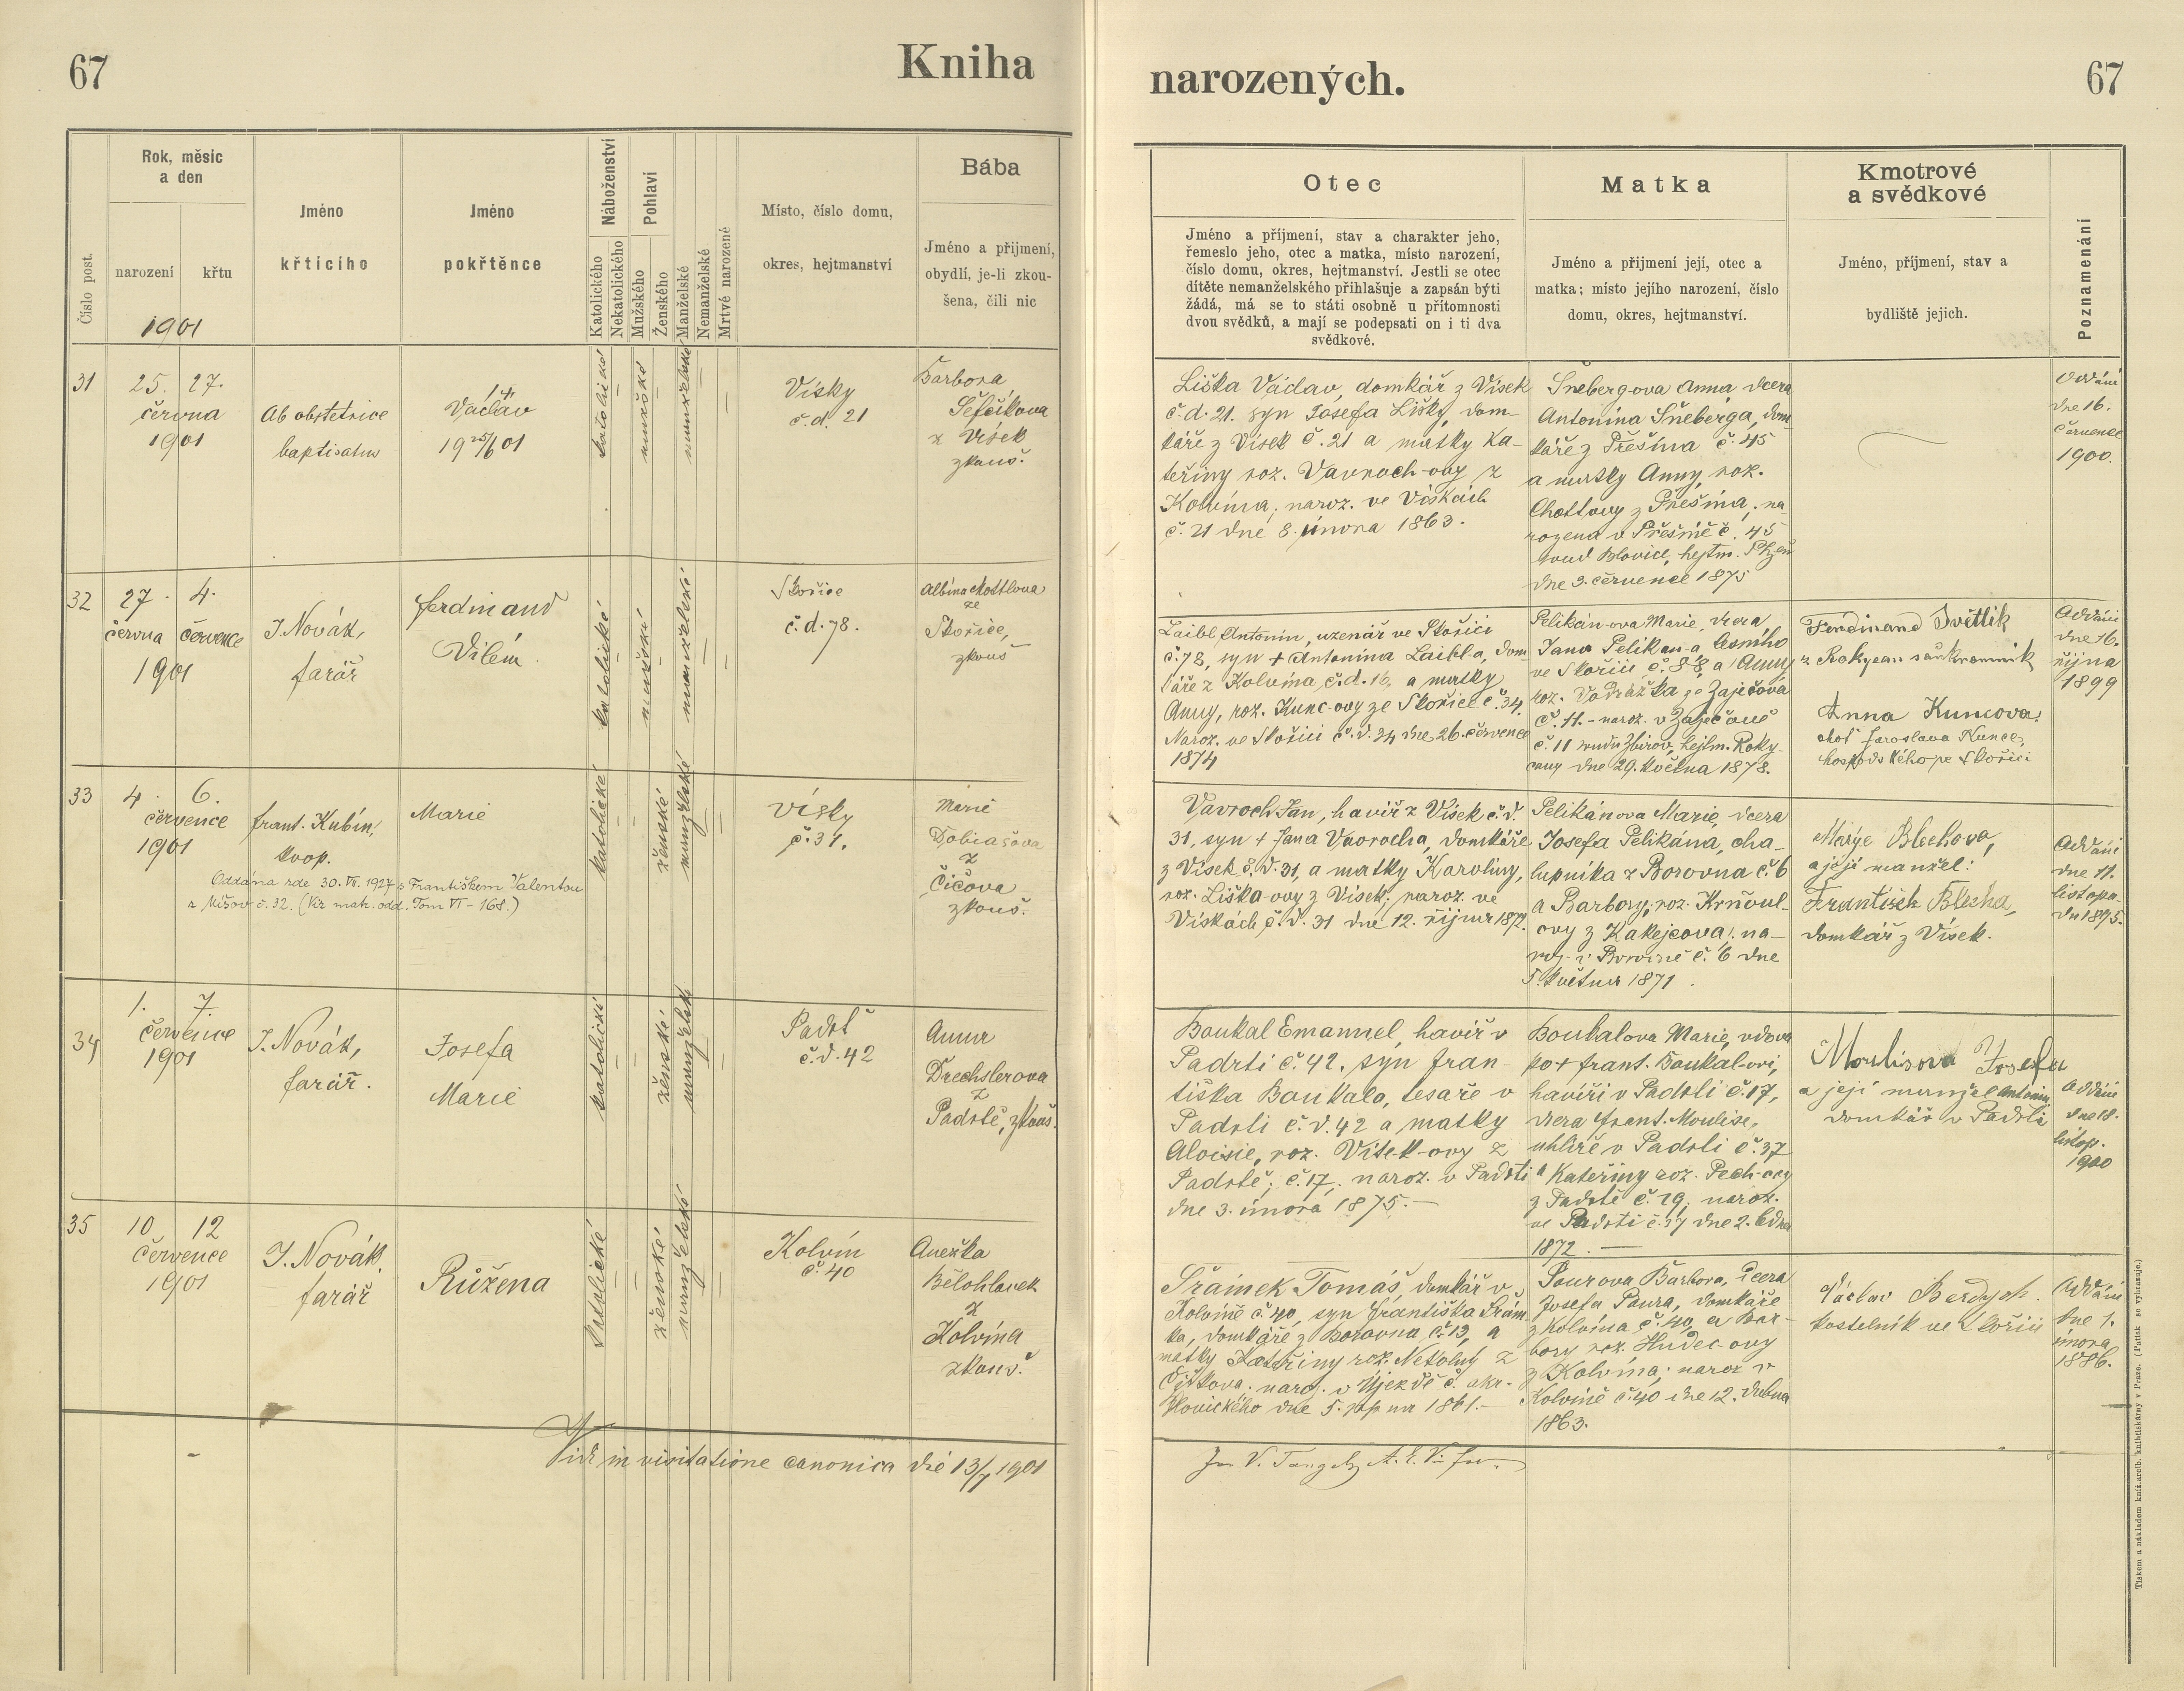 67
Kniha
narozených.
67
Číslo post.
Rok, měsíc
a den
narození
křtu
1901
Jméno
křticího
Jméno
pokřtěnce
Náboženství
Katolického
Nekatolického
Pohlaví
Mužského
Ženského
Manželské
Nemanželské
Mrtvé narozené
Místo, číslo domu,
okres, hejtmanství
Bába
Jméno a přijmení,
obydlí, je-li zkou-
šena, čili nic
Otec
Jméno a příjmení, stav a charakter jeho,
řemeslo jeho, otec a matka, místo narození,
číslo domu, okres, hejtmanství. Jestli se otec
dítěte nemanželského přihlašuje a zapsán býti
žádá, má se to státi osobně u přítomnosti
dvou svědků, a mají se podepsati on i ti dva
svědkové.
Matka
Jméno a přijmení její, otec a
matka; místo jejího narození, číslo
domu, okres, hejtmanství.
Kmotrové
a svědkové
Jméno, příjmení, stav a
bydliště jejich.
Poznamenání
31
25. 27.
června
1901
Ab obstetrice
baptisatus
Václav
19 25/6 01
katolické
mužské
manželské
Vísky
č.d. 21
Barbora
Šefčíkova
z Vísek
zkouš.
Liška Václav, domkář z Vísek
č.d. 21. syn Josefa Lišky, dom-
káře z Vísek č. 21 a matky Ka-
teřiny roz. Vavroch-ovy z
Kolvína, naroz. ve Vískách
č. 21 dne 8. února 1863.
Šnebergova Anna, dcera
Antonína Šneberga, dom
káře z Přešína č. 45
a matky Anny, roz.
Chottovy z Přešína, na-
rozena v Přešíně č. 45
soud Blovice, hejtm. Plzeň
dne 9. července 1875
Oddáni
dne 16.
července
1900.
32
27. 4.
června července
1901
J. Novák,
farář
Ferdinand
Vilém.
katolické
mužské
manželské
Skořice
č.d. 78.
Albína
ze
Skořice,
zkouš
Laibl Antonín, uzenář ve Skořici
č. 78, syn + Antonína Laibla, dom-
káře z Kolvína, č.d. 16, a matky
Anny, roz. Kunc-ovy ze Skořice č. 34.
Naroz. ve Skořici č.d. 34 dne 26. července
1874
Pelikán-ova Marie, dcera
Jana Pelikán-a lesního
ve Skořici č. 88, a Anny
roz. Vodrážka ze Zaječova
č. 11. - naroz. v Zaječově
č. 11 soudu Zbirov, hejtm. Roky-
cany dne 29. května 1878.
Ferdinand Světlík
z Rokycan soukenník
Anna Kuncova
choť Jaroslava Kunce,
hospodského ve Skořici
Oddáni
dne 16.
října
1899
33
4. 6.
července
1901
Frant. Kubín,
koop.
Marie
Oddána zde 30. VII. 1927 s Františkem Valentou
z Míšov č. 32. (Viz matr. odd. Tom VI - 168.)
katolické
ženské
manželské
Vísky
č. 31.
Marie
Dobiášova
z
Číčova
zkouš.
Vavroch Jan, havíř z Vísek č.d.
31, syn + Jana Vavrocha, domkáře
z Vísek č.d. 31, a matky Karoliny,
roz. Liška-ovy z Vísek, naroz. ve
Vískách č.d. 31 dne 12. října 1872.
Pelikánova Marie, dcera
Josefa Pelikána, cha-
lupníka z Borovna č. 6
a Barbory, roz. Krňoul-
ovy z Kakejcova, na-
roz. v Borovně č. 6 dne
5. května 1871.
Marye Blechova,
a její manžel:
František Blecha,
domkář z Vísek.
Oddáni
dne 11.
listopa-
du 1895.
34
1. 7.
července
1901
J. Novák,
farář.
Josefa
Marie
katolické
ženské
manželské
Padrť
č.d. 42
Anna
Drechslerova
z
Padrtě, zkouš.
Boukal Emanuel, havíř v
Padrti č. 42. syn Fran-
tiška Boukala, tesaře v
Padrti č.d. 42 a matky
Aloisie, roz. Vítek-ovy z
Padrtě, č. 17, naroz. v Padrti
dne 3. února 1875. —
Boukalova Marie, vdova
po + Frant. Boukal-ovi,
havíři v Padrti č. 17,
dcera Frant. Moulise,
uhlíře v Padrti č. 37
a Kateřiny roz. Pech-ovy
z Padrtě č. 19, naroz.
ve Padrti č. 37 dne 2. ledna
1872. —
Moulisova Josefa
a její manžel Antonín
domkář v Padrti
Oddáni
dne 18.
listop.
1900
35
10 12
července
1901
J. Novák,
farář
Růžena
katolické
ženské
manželské
Kolvín
č. 40
Anežka
Bělohlavek
z
Kolvína
zkouš.
Šrámek Tomáš, domkář v
Kolvíně č. 40, syn Františka Šrám-
ka, domkáře z Borovna č. 13, a
matky Kateřiny roz. Netolný z
naroz. v Újezdě č. okr.
Blovického dne 5. srpna 1861. —
Sourova Barbora, dcera
Josefa Soura, domkáře
z Kolvína č. 40, a Bar-
bory roz. Hudec-ovy
z Kolvína; naroz. v
Kolvíně č. 40 dne 12. dubna
1863.
Václav
kostelník ve Skořici
Oddáni
dne 1.
února
1886.
Vidi in visitatione canonica die 13/7 1901
Tiskem a nákladem kníž. arcib. knihtiskárny v Praze. (Patisk se vyhrazuje.)